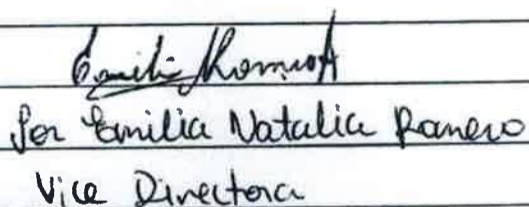 Emilia Romero
Por Emilia Natalia Romero
Vice Directora